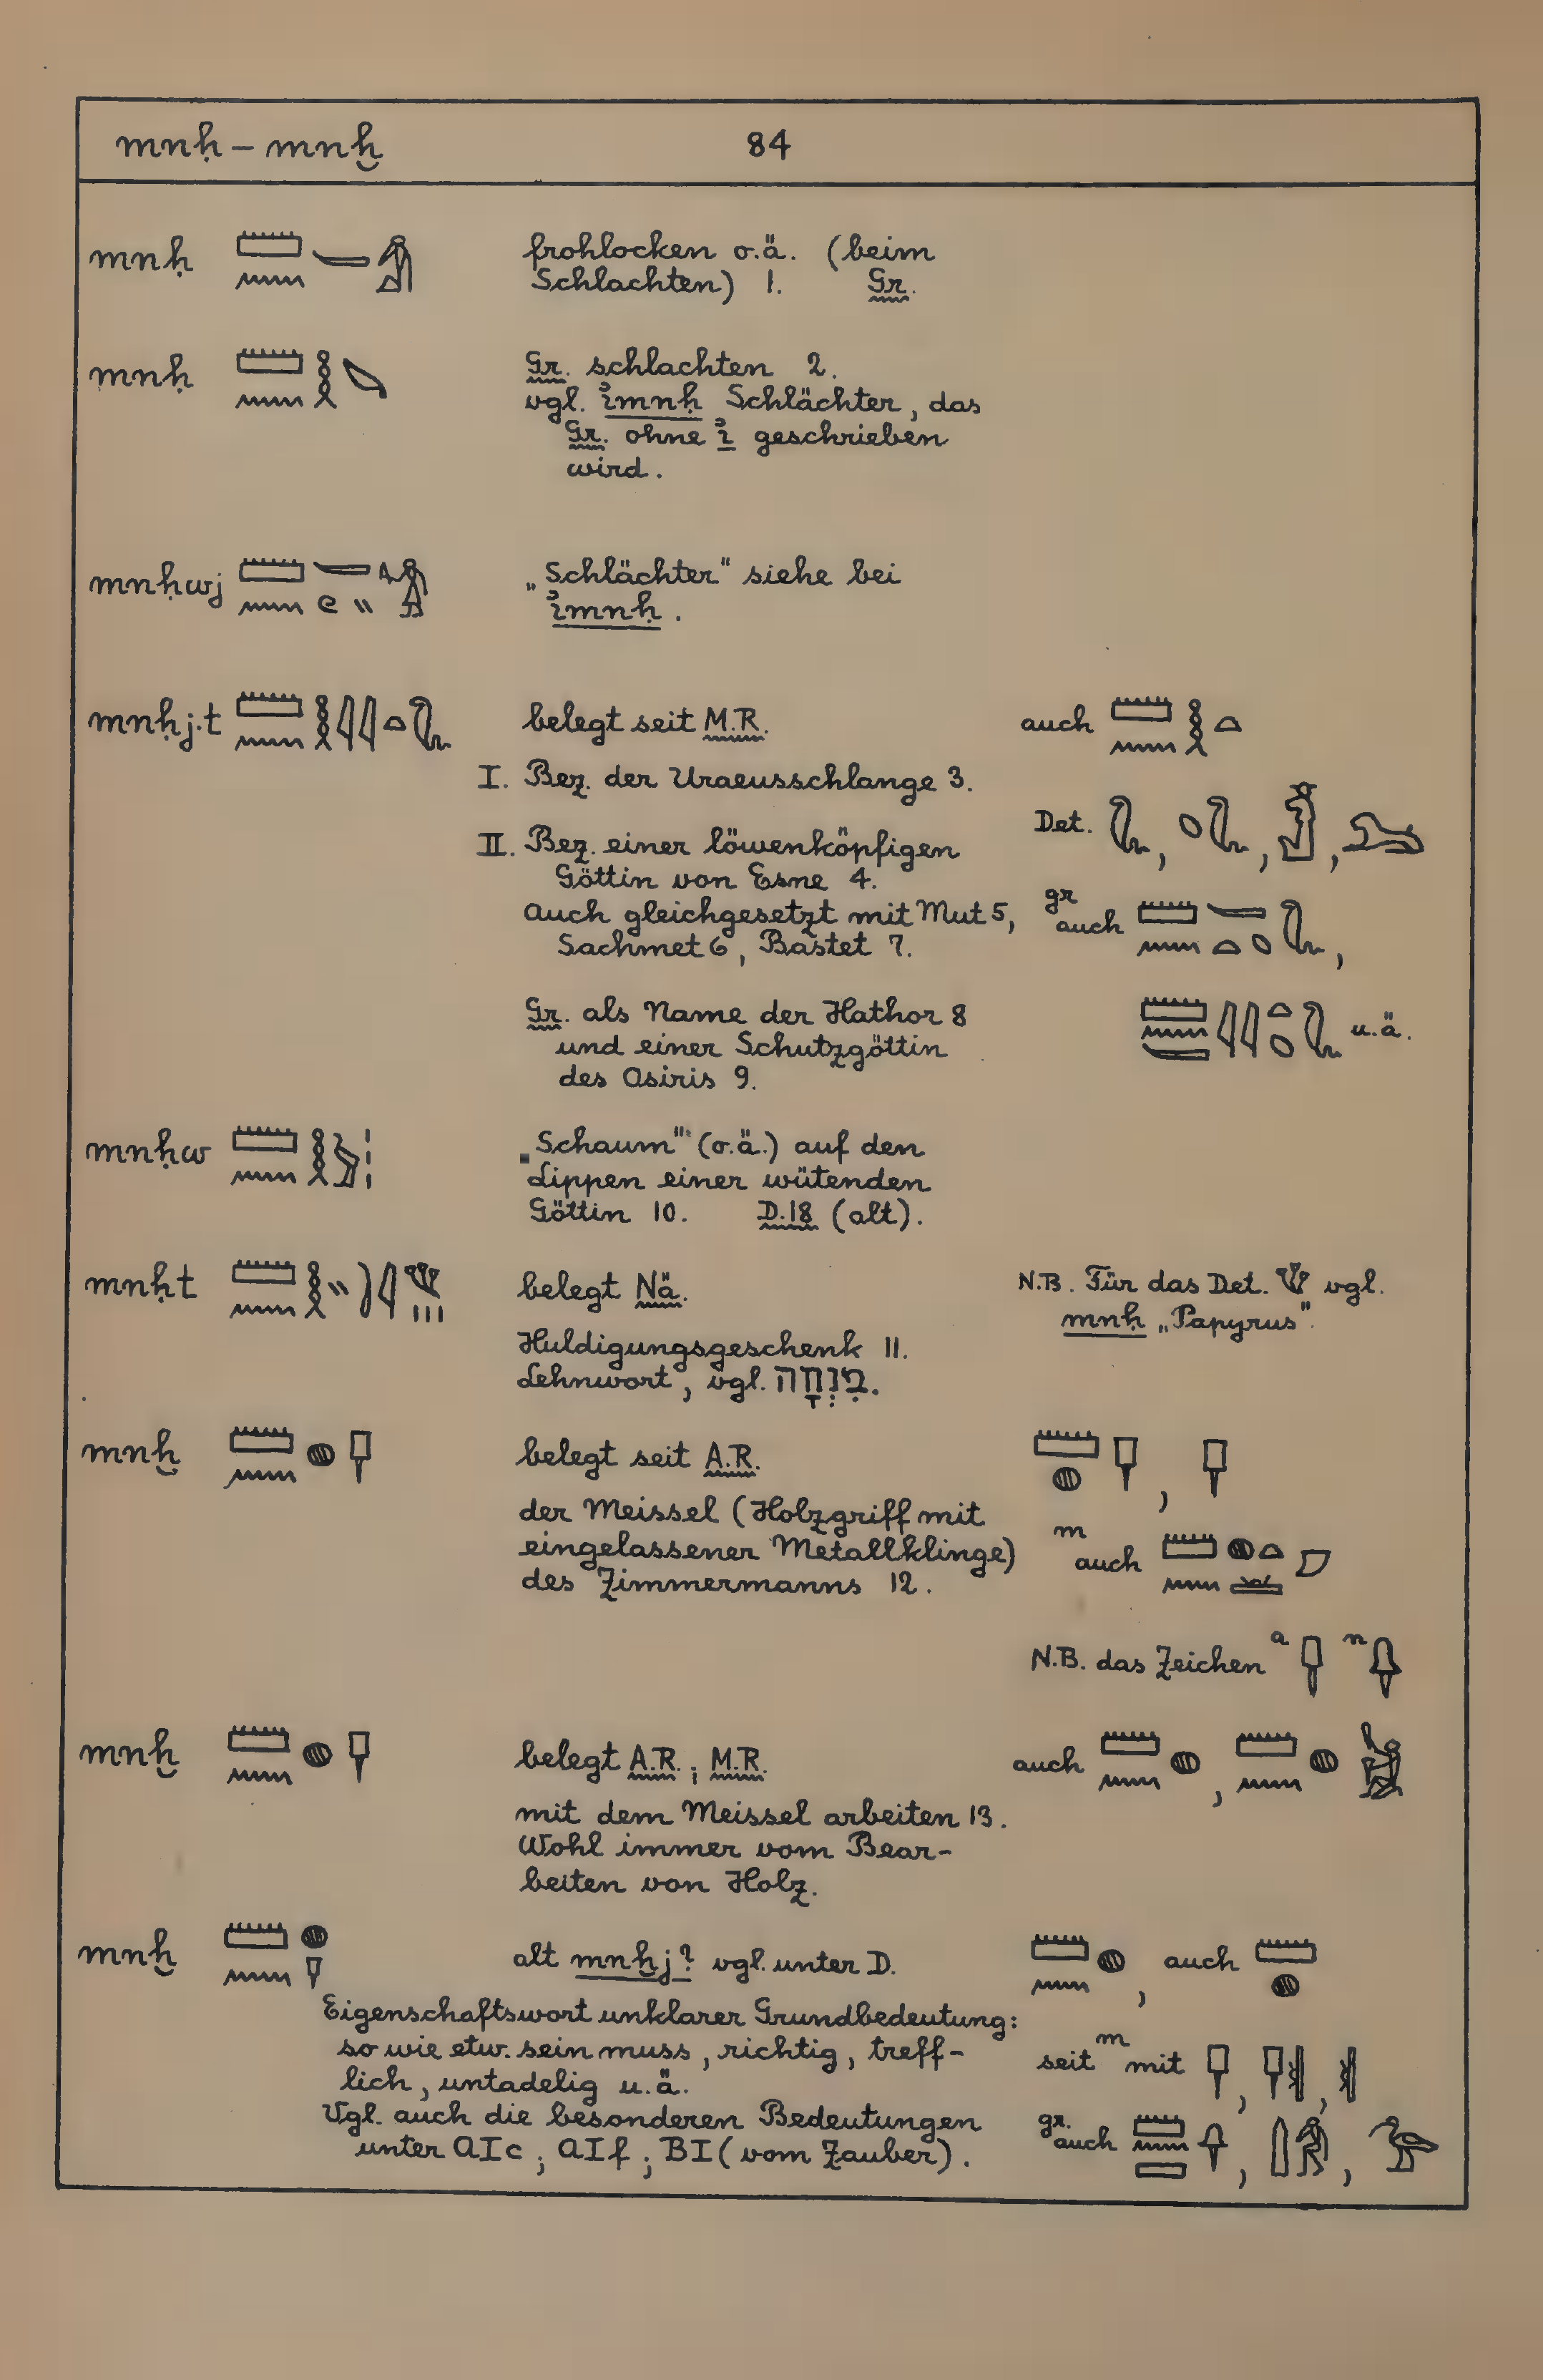 mnḥ – mnḫ 84
mnḥ frohlocken o.ä. (beim
Schlachten) 1. Gr.
mnḥ Gr. schlachten 2.
vgl. i҆mnḥ Schlächter, das
Gr. ohne i҆ geschrieben
wird.
mnḥwj „Schlächter" siehe bei
i҆mnḥ.
mnḥj.t belegt seit M.R. auch
I. Bez. der Uraeusschlange 3.
Det. , , ,
II. Bez. einer löwenköpfigen
Göttin von Esne 4.
Auch gleichgesetzt mit Mut 5,
Sachmet 6, Bastet 7.
gr auch ,
Gr. als Name der Hathor 8
und einer Schutzgöttin
des Osiris 9.
u.ä.
mnḥw „Schaum" (o.ä.) auf den
Lippen einer wütenden
Göttin 10. D.18 (alt).
mnḥt belegt Nä.
N.B. Für das Det. vgl.
mnḥ „Papyrus".
Huldigungsgeschenk 11.
Lehnwort, vgl. מִנְחָה.
mnḫ belegt seit A.R.
der Meissel (Holzgriff mit
eingelassener Metallklinge)
des Zimmermanns 12.
m auch
N.B. das Zeichen a n
mnḫ belegt A.R.; M.R. auch ,
mit dem Meissel arbeiten 13.
Wohl immer vom Bear-
beiten von Holz.
mnḫ alt mnḫj? vgl. unter D. , auch
Eigenschaftswort unklarer Grundbedeutung:
so wie etw. sein muss, richtig, treff-
lich, untadelig u.ä.
seit m mit , ,
Vgl. auch die besonderen Bedeutungen
unter AIc; AIf; BI (vom Zauber).
gr. auch , ,